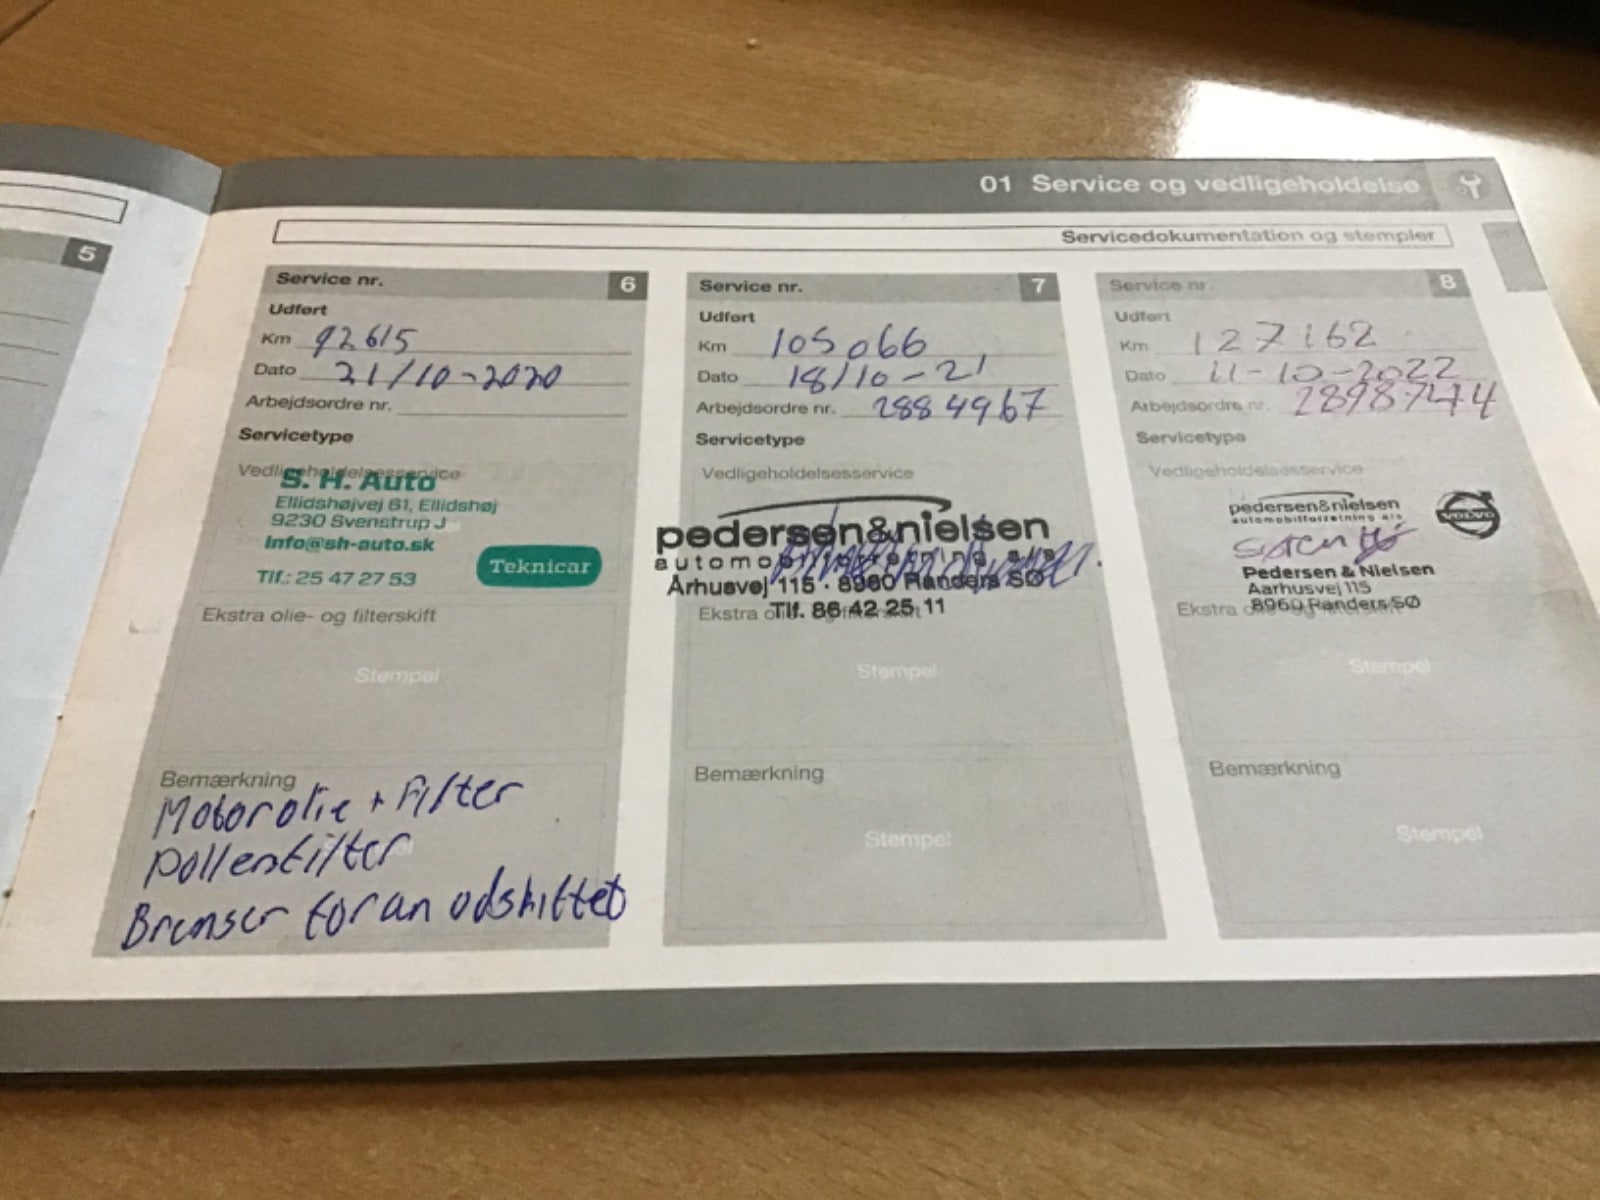 01 Service og vedligeholdelse
Servicedokumentation og stempler
5
Service nr. 6
Udført
Km 92615
Dato 21/10-2020
Arbejdsordre nr.
Servicetype
Vedligeholdelsesservice
S. H. Auto
Ellidshøjvej 61, Ellidshøj
9230 Svenstrup J
Info@sh-auto.sk
Tlf.: 25 47 27 53
Teknicar
Ekstra olie- og filterskift
Stempel
Bemærkning
Motorolie + Filter
Pollenfilter
Bremser foran udskiftet
Service nr. 7
Udført
Km 105066
Dato 18/10-21
Arbejdsordre nr. 2884967
Servicetype
Vedligeholdelsesservice
pedersen&nielsen
Århusvej 115 · 8960 Randers SØ
Tlf. 86 42 25 11
Ekstra olie- og filterskift
Stempel
Bemærkning
Stempel
Service nr. 8
Udført
Km 127162
Dato 11-10-2022
Arbejdsordre nr. 28987474
Servicetype
Vedligeholdelsesservice
pedersen&nielsen
automobilforretning a/s
VOLVO
Pedersen & Nielsen
Aarhusvej 115
8960 Randers SØ
Ekstra olie- og filterskift
Stempel
Bemærkning
Stempel